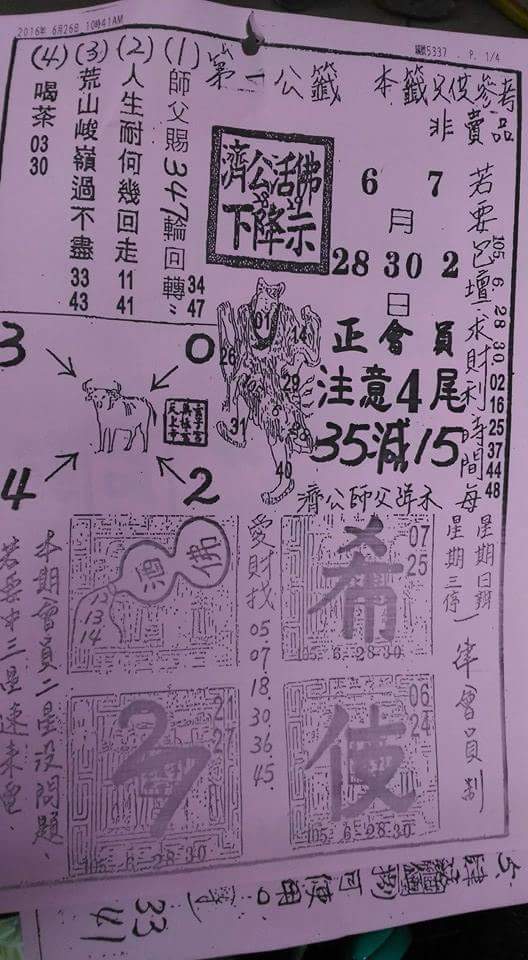 2016年 6月26日 10時41AM
編號5337 . P. 1/4
第一公籤
本籤只供參考
非賣品
(1) 師父賜347輪回轉
34
47
(2) 人生耐何幾回走
11
41
(3) 荒山峻嶺過不盡
33
43
(4) 喝茶
03
30
濟公活佛
下降示
6 7
月
28 30 2
日
正會員
注意4尾
35減15
濟公師父詳示
若要
壇求財利時間每
星期日辦
星期三停
一律會員制
105 6 28 30 02 16 25 37 44 48
3 0
4 2
01
14
26
29
31
40
酒
佛
13
13
14
愛財找
05
07
18
30
36
45
希
07
25
105. 6. 28-30
21
27
105. 6. 28-30
使
06
24
105. 6. 28-30
本期會員二星沒問題、
若要中三星速來電、
33 41